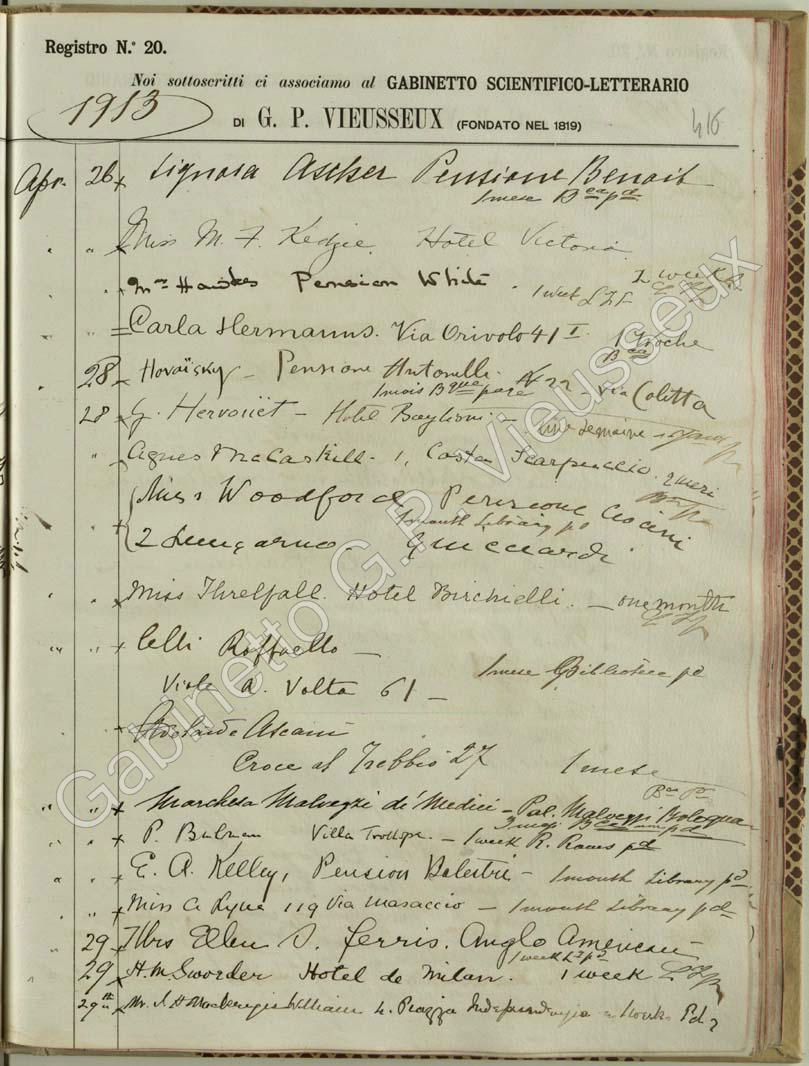 Registro N.° 20.
Noi sottoscritti ci associamo al GABINETTO SCIENTIFICO-LETTERARIO
1913
DI G. P. VIEUSSEUX (FONDATO NEL 1819)
416
Apr. 26 Signora Ascher Pensione Benoit
1 mese Bca pd
" " Miss M. F. Kedzie. Hotel Victoria
Mrs Hawkes Pension White. 1 week
Carla Hermanns. Via Orivolo 41 I.
28 Pensione Antonelli. No 22 - Via Coletta
28 G. Hervouët - Hotel Baglioni - Une semaine
" Agnes McCaskill. 1, Costa Scarpuccio. 2 mesi
Miss Woodford Pensione
1 month Library pd
2 Lungarno Guicciardi
" " Miss Threlfall. Hotel Birchielli. - one month
" " Celli Raffaello -
1 mese Biblioteca pd
Viale A. Volta 61 -
Adelaide Ascani
Croce al Trebbio 27 1 mese
" " Marchesa Malvezzi de' Medici - Pal. Malvezzi Bologna
" " P. Bulman Villa Trollope - 1 week R. Rooms pd
" " E. A. Kelley, Pension Balestri - 1 month Library pd
" " Miss A. 119 Via Masaccio - 1 month Library pd
29 Mrs Ellen S. Ferris. Anglo American
1 week
29 H. M. Sworder Hotel de Milan. 1 week
29 Mr. Mackenzie William 4. Piazza Indipendenza Pd
Gabinetto G.P. Vieusseux